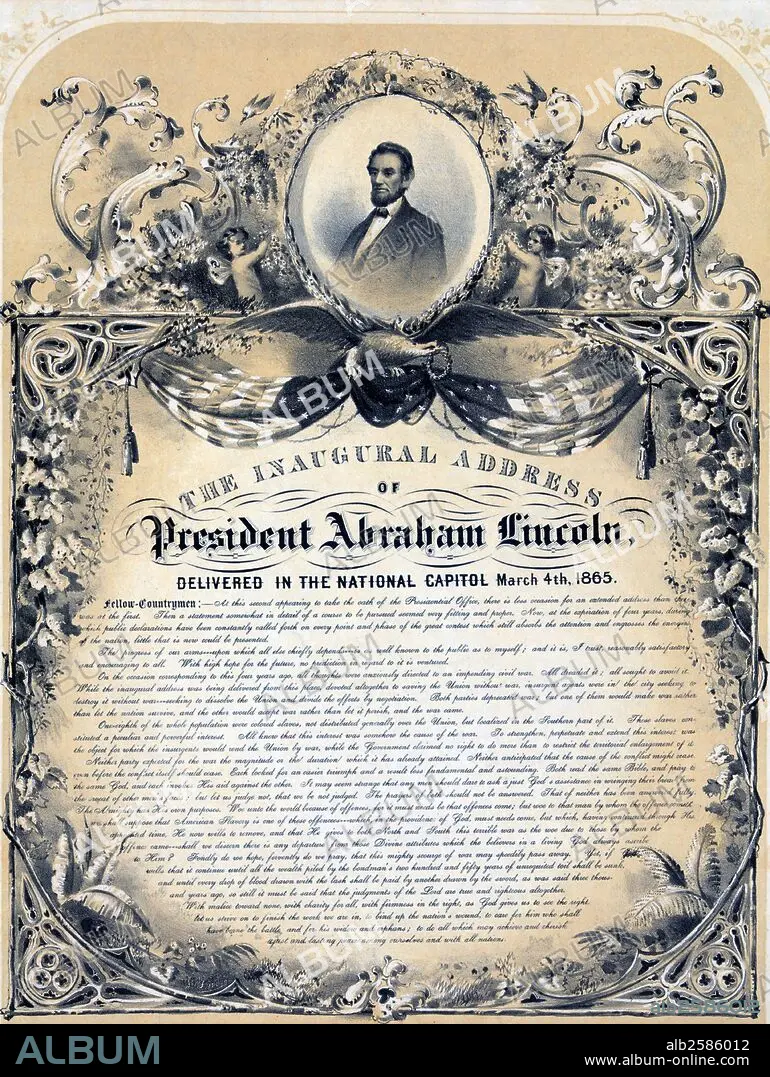 THE INAUGURAL ADDRESS
OF
President Abraham Lincoln,
DELIVERED IN THE NATIONAL CAPITOL March 4th, 1865.
Fellow-Countrymen:—At this second appearing to take the oath of the Presidential Office, there is less occasion for an extended address than there
was at the first. Then a statement somewhat in detail of a course to be pursued seemed very fitting and proper. Now, at the expiration of four years, during
which public declarations have been constantly called forth on every point and phase of the great contest which still absorbs the attention and engrosses the energies
of the nation, little that is new could be presented.
The progress of our arms—upon which all else chiefly depends—is as well known to the public as to myself; and it is, I trust, reasonably satisfactory
and encouraging to all. With high hope for the future, no prediction in regard to it is ventured.
On the occasion corresponding to this four years ago, all thoughts were anxiously directed to an impending civil war. All dreaded it; all sought to avoid it.
While the inaugural address was being delivered from this place, devoted altogether to saving the Union without war, insurgent agents were in the city seeking to
destroy it without war—seeking to dissolve the Union, and divide the effects by negotiation. Both parties deprecated war; but one of them would make war rather
than let the nation survive, and the other would accept war rather than let it perish, and the war came.
One-eighth of the whole population were colored slaves, not distributed generally over the Union, but localized in the Southern part of it. These slaves con-
stituted a peculiar and powerful interest. All know that this interest was somehow the cause of the war. To strengthen, perpetuate and extend this interest, was
the object for which the insurgents would rend the Union by war, while the Government claimed no right to do more than to restrict the territorial enlargement of it.
Neither party expected for the war the magnitude or the duration which it has already attained. Neither anticipated that the cause of the conflict might cease
even before the conflict itself should cease. Each looked for an easier triumph and a result less fundamental and astounding. Both read the same Bible, and pray to
the same God, and each invokes His aid against the other. It may seem strange that any men should dare to ask a just God's assistance in wringing their bread from
the sweat of other men's faces; but let us judge not, that we be not judged. The prayers of both should not be answered. That of neither has been answered fully.
The Almighty has His own purposes. Woe unto the world because of offences, for it must needs be that offences come; but woe to that man by whom the offence cometh.
If we shall suppose that American Slavery is one of these offences—which, in the providence of God, must needs come, but which, having continued through His
appointed time, He now wills to remove, and that He gives to both North and South this terrible war as the woe due to those by whom the
offence came—shall we discern there is any departure from those Divine attributes which the believers in a living God always ascribe
to Him? Fondly do we hope, fervently do we pray, that this mighty scourge of war may speedily pass away. Yet, if God
wills that it continue until all the wealth piled by the bondman's two hundred and fifty years of unrequited toil shall be sunk,
and until every drop of blood drawn with the lash shall be paid by another drawn by the sword, as was said three thous-
and years ago, so still it must be said that the judgments of the Lord are true and righteous altogether.
With malice toward none, with charity for all, with firmness in the right, as God gives us to see the right,
let us strive on to finish the work we are in, to bind up the nation's wound, to care for him who shall
have borne the battle, and for his widow and orphans; to do all which may achieve and cherish
a just and lasting peace among ourselves and with all nations.
ALBUM
alb2586012
www.album-online.com